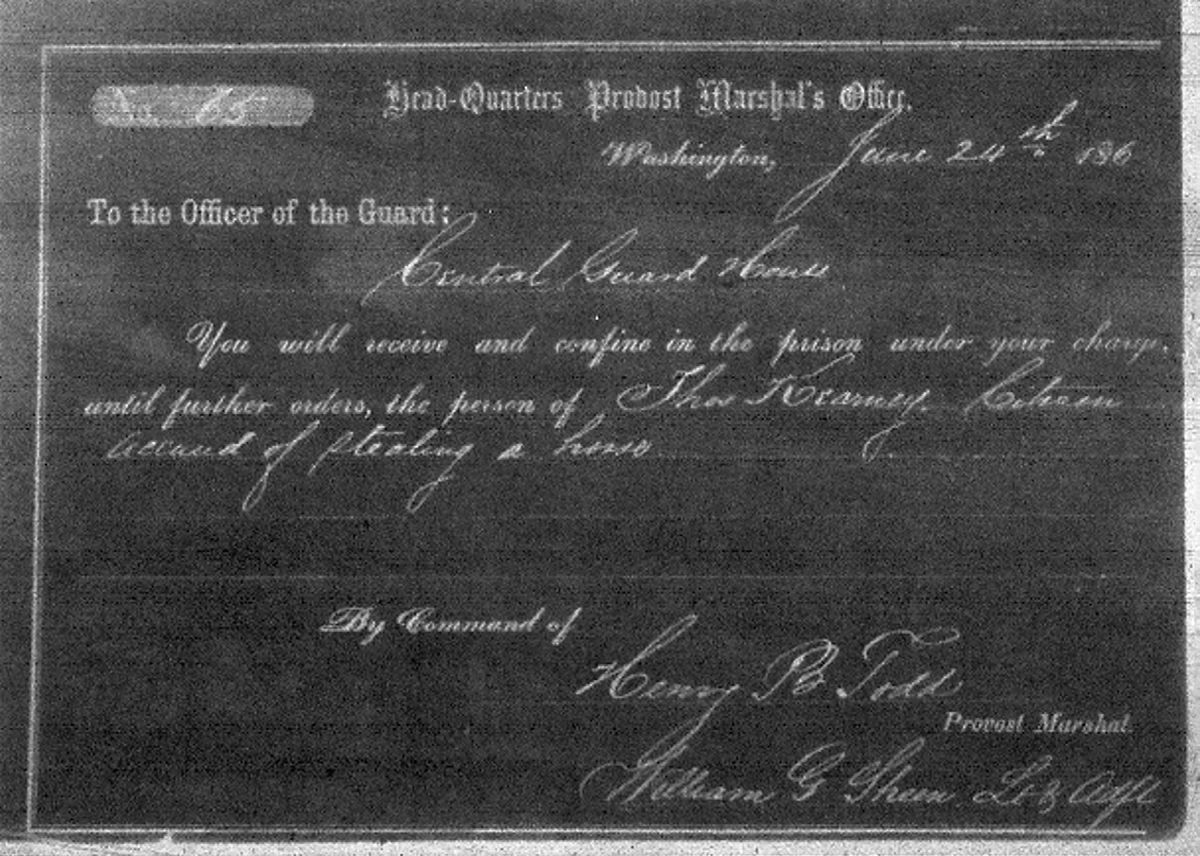 No. 65
Head-Quarters Provost Marshal's Office.
Washington, June 24th 186
To the Officer of the Guard:
Central Guard House
You will receive and confine in the prison under your charge,
until further orders, the person of Thos Kearney. Citizen
accused of stealing a horse
By Command of
Henry B Todd
Provost Marshal.
William G Lt & Adjt